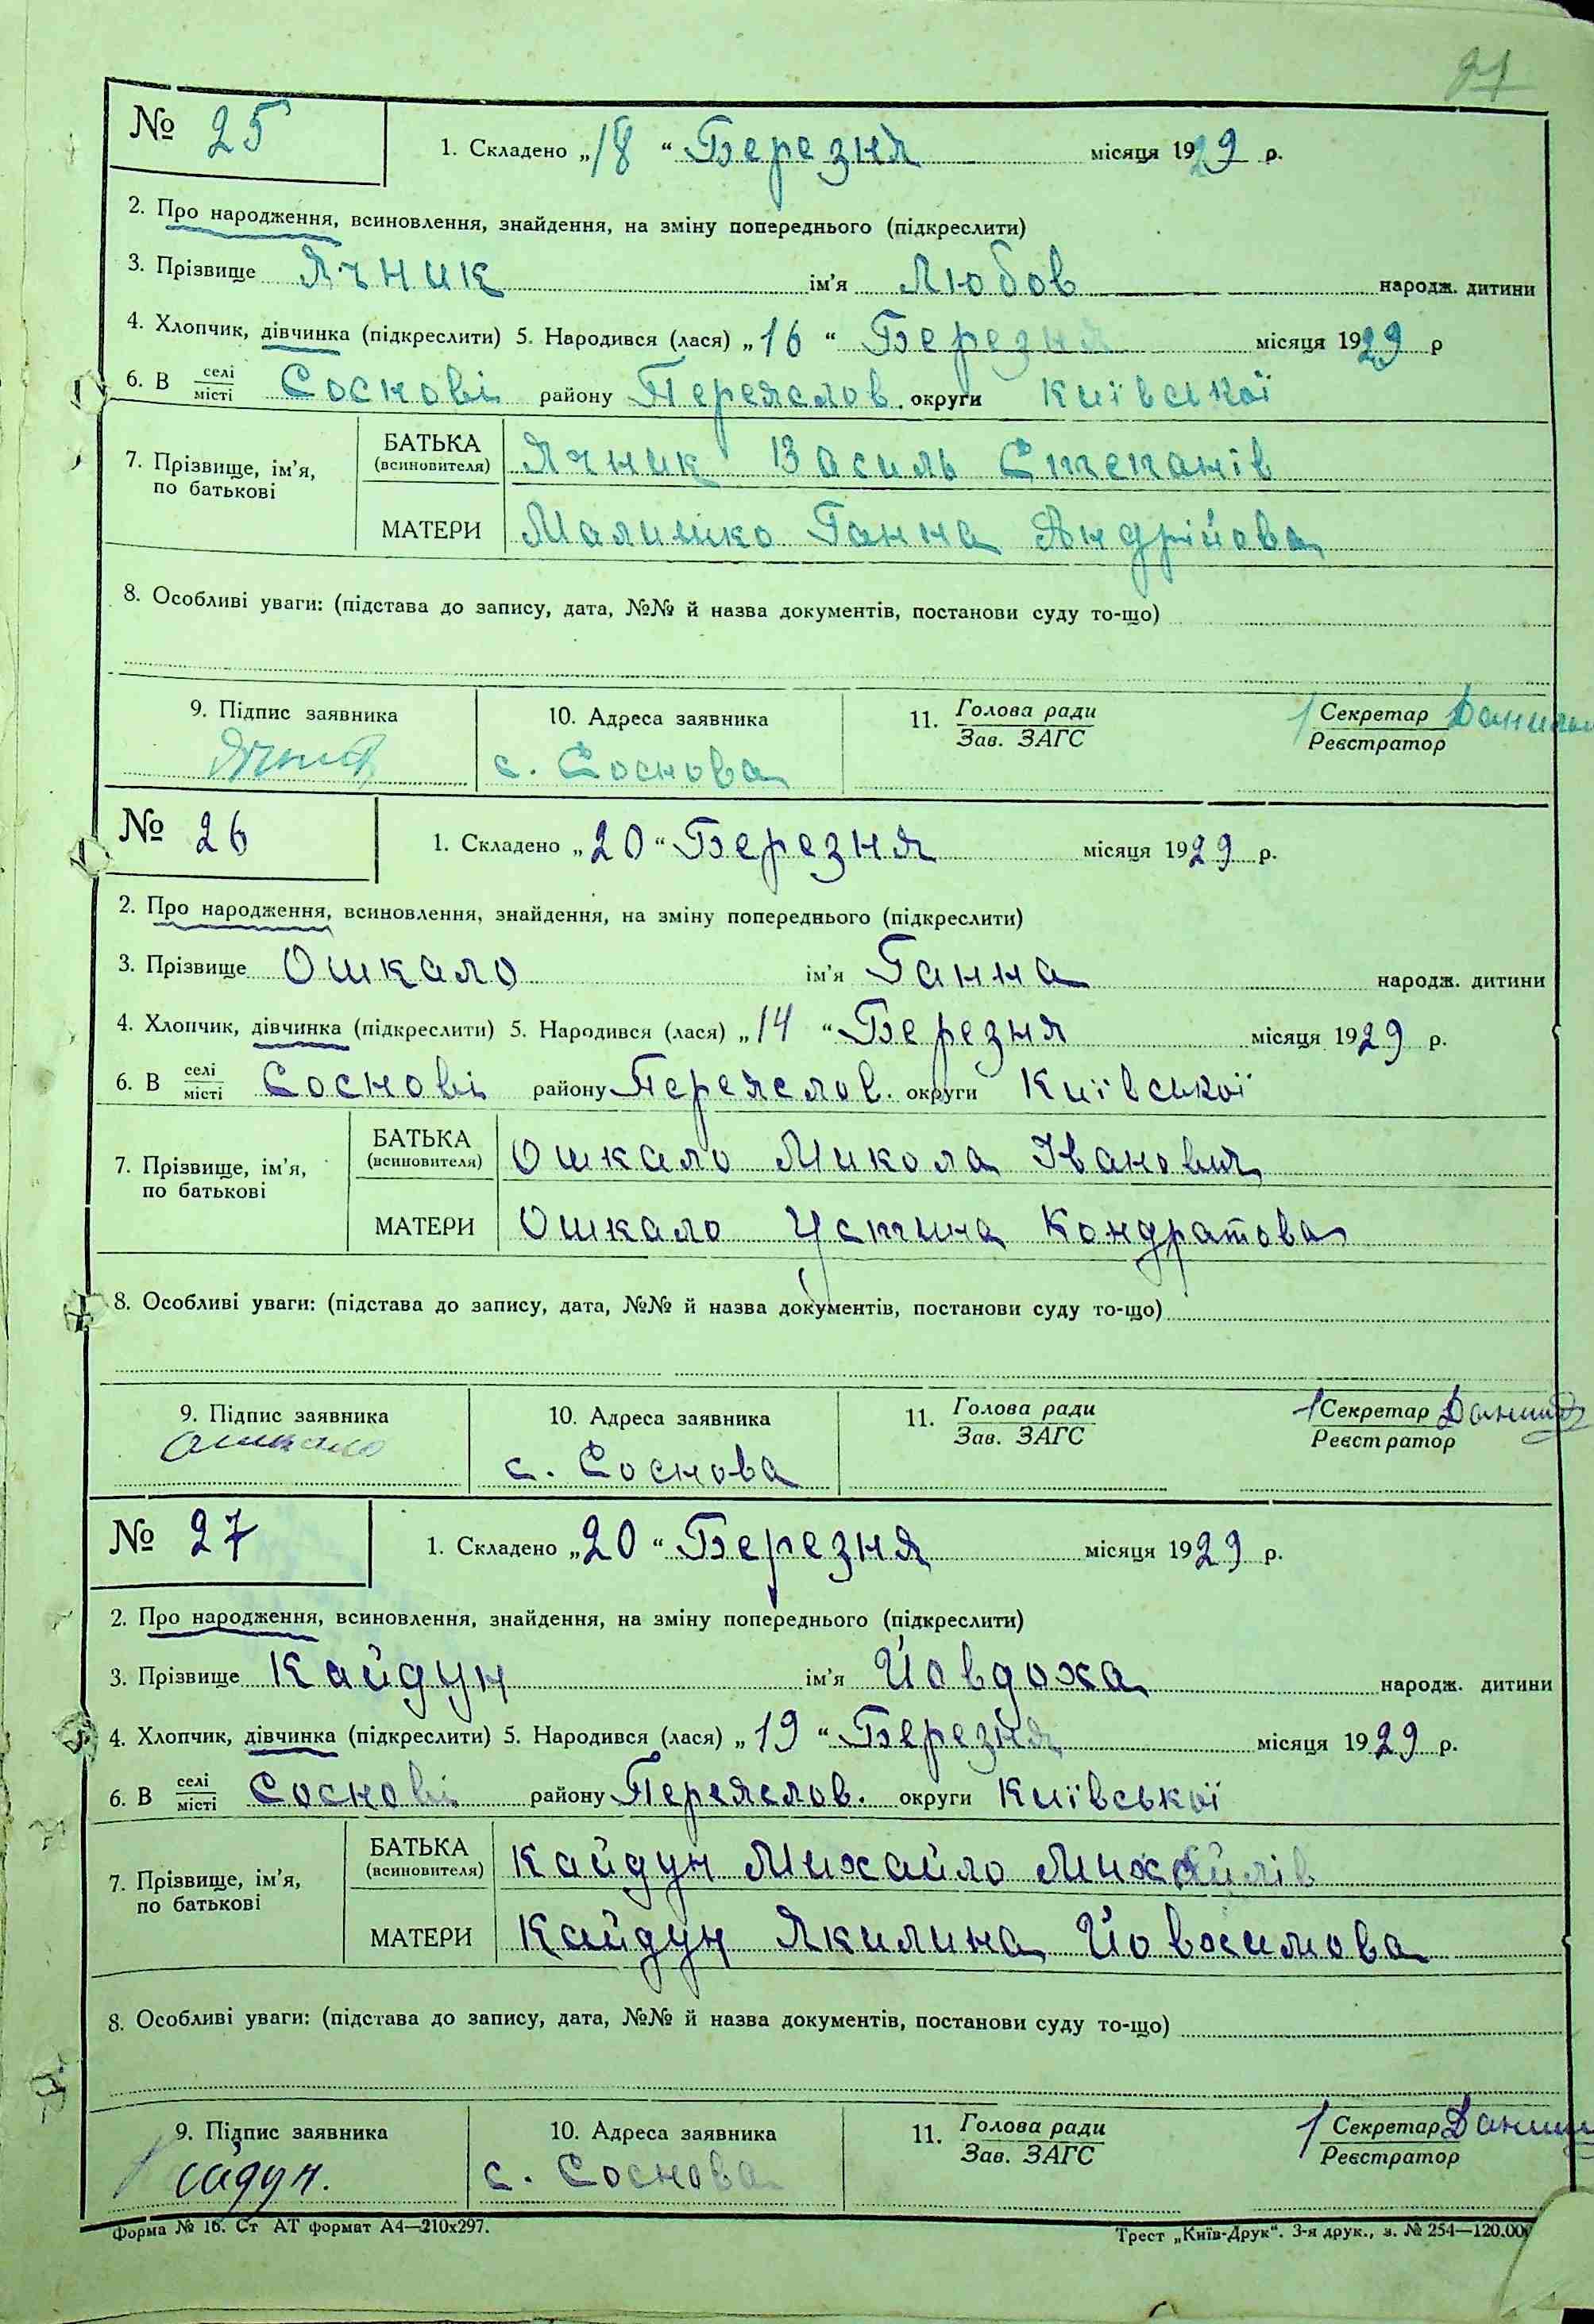 91
№ 25
1. Складено „18“ Березня місяця 1929 р.
2. Про народження, всиновлення, знайдення, на зміну попереднього (підкреслити)
3. Прізвище Ячник ім'я Любов народж. дитини
4. Хлопчик, дівчинка (підкреслити) 5. Народився (лася) „16“ Березня місяця 1929 р
6. В селі/місті Соснові району Переяслов. округи Київської
7. Прізвище, ім'я, по батькові
БАТЬКА (всиновителя) Ячник Василь Степанів
МАТЕРИ Малишко Ганна Андрійова
8. Особливі уваги: (підстава до запису, дата, №№ й назва документів, постанови суду то-що)
9. Підпис заявника 10. Адреса заявника 11. Голова ради/Зав. ЗАГС Секретар/Реєстратор
с. Соснова
№ 26
1. Складено „20“ Березня місяця 1929 р.
2. Про народження, всиновлення, знайдення, на зміну попереднього (підкреслити)
3. Прізвище Ошкало ім'я Ганна народж. дитини
4. Хлопчик, дівчинка (підкреслити) 5. Народився (лася) „14“ Березня місяця 1929 р.
6. В селі/місті Соснові району Переяслов. округи Київської
7. Прізвище, ім'я, по батькові
БАТЬКА (всиновителя) Ошкало Микола Іванович
МАТЕРИ Ошкало Устина Кондратова
8. Особливі уваги: (підстава до запису, дата, №№ й назва документів, постанови суду то-що)
9. Підпис заявника 10. Адреса заявника 11. Голова ради/Зав. ЗАГС Секретар/Реєстратор
Ошкало с. Соснова
№ 27
1. Складено „20“ Березня місяця 1929 р.
2. Про народження, всиновлення, знайдення, на зміну попереднього (підкреслити)
3. Прізвище Кайдун ім'я Йовдоха народж. дитини
4. Хлопчик, дівчинка (підкреслити) 5. Народився (лася) „19“ Березня місяця 1929 р.
6. В селі/місті Соснові району Переяслов. округи Київської
7. Прізвище, ім'я, по батькові
БАТЬКА (всиновителя) Кайдун Михайло Михайлів
МАТЕРИ Кайдун Якилина Йовхимова
8. Особливі уваги: (підстава до запису, дата, №№ й назва документів, постанови суду то-що)
9. Підпис заявника 10. Адреса заявника 11. Голова ради/Зав. ЗАГС Секретар/Реєстратор
с. Соснова
Форма № 16. Ст АТ формат А4—210х297.
Трест „Київ-Друк“. 3-я друк., з. № 254—120.000